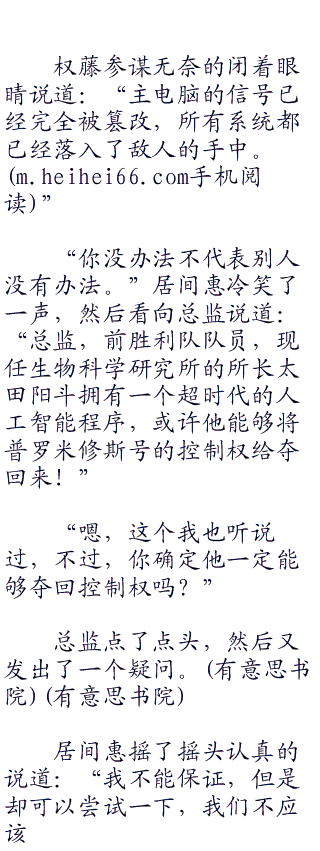 权藤参谋无奈的闭着眼
睛说道：“主电脑的信号已
经完全被篡改，所有系统都
已经落入了敌人的手中。
(m.heihei66.com手机阅
读)”
“你没办法不代表别人
没有办法。”居间惠冷笑了
一声，然后看向总监说道：
“总监，前胜利队队员，现
任生物科学研究所的所长太
田阳斗拥有一个超时代的人
工智能程序，或许他能够将
普罗米修斯号的控制权给夺
回来！”
“嗯，这个我也听说
过，不过，你确定他一定能
够夺回控制权吗？”
总监点了点头，然后又
发出了一个疑问。(有意思书
院)(有意思书院)
居间惠摇了摇头认真的
说道：“我不能保证，但是
却可以尝试一下，我们不应
该